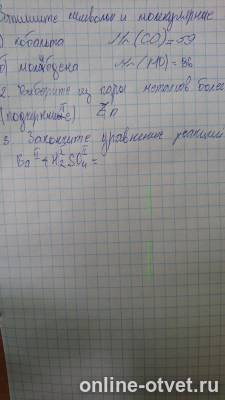 Впишите символы и молекулярные
) кобальта Mr (CO) = 59
б) молибдена Mr (MO) = 96
2. Выберите из пары металлов более
(подчеркните) Zn
3. Закончите уравнение реакций
Ba + H2SO4 =
online-otvet.ru